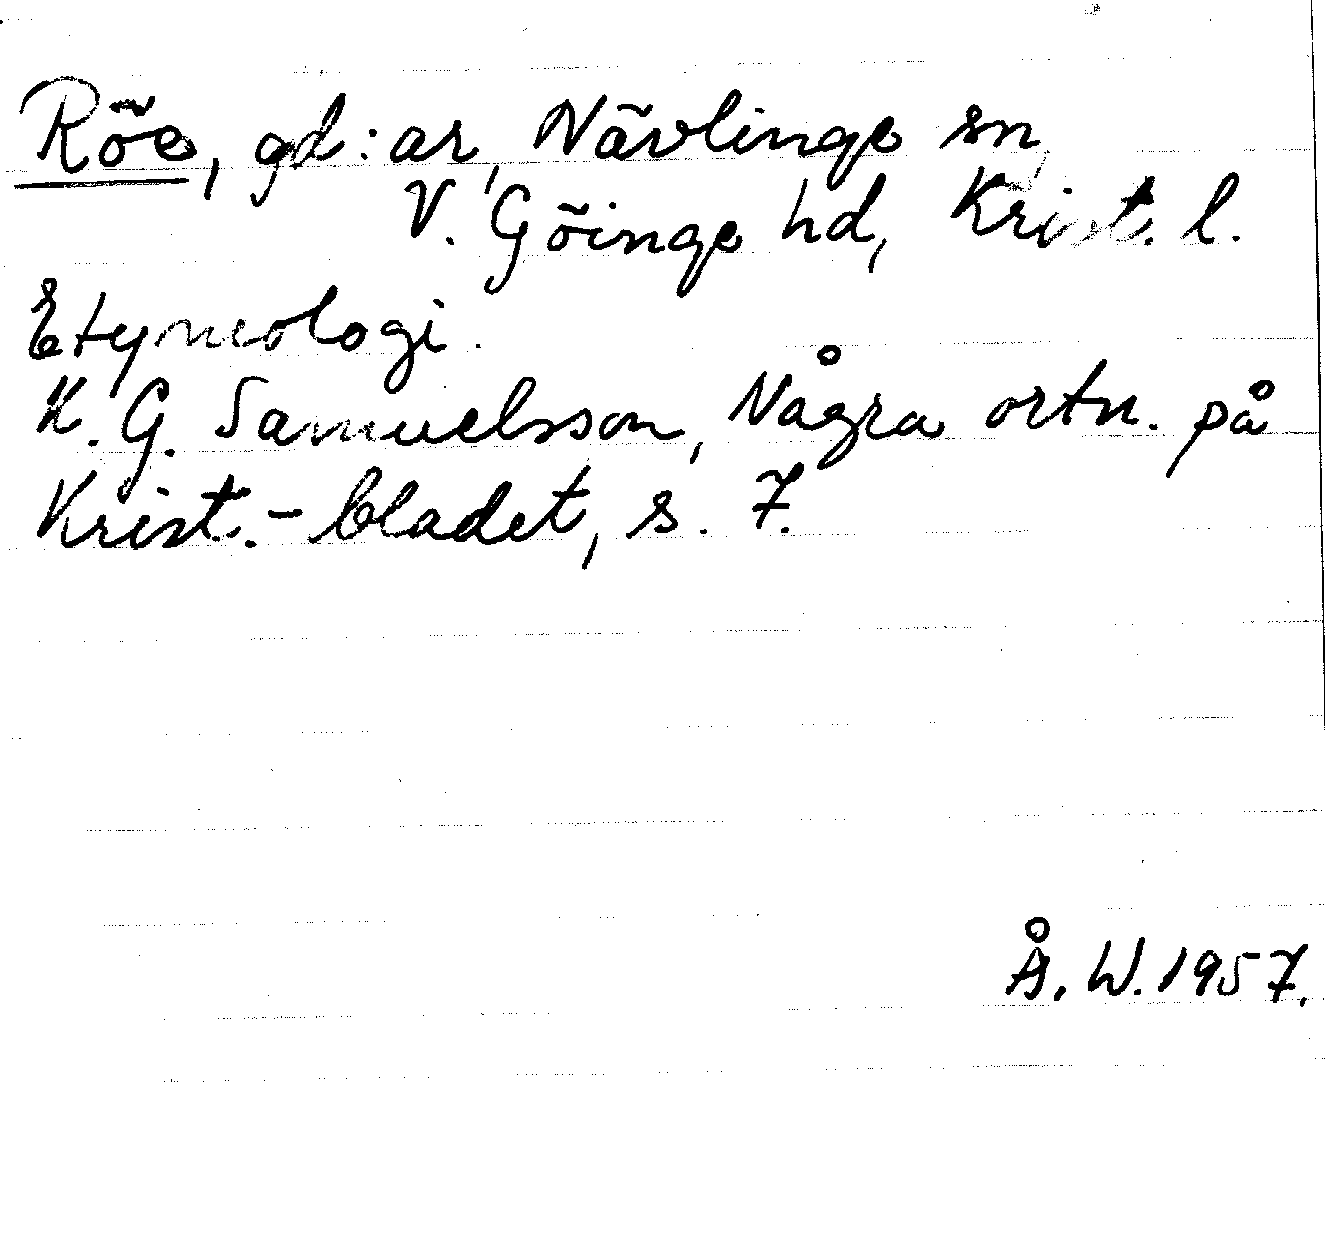 Röe, gd:ar, Nävlinge sn,
V. Göinge hd, Krist. l.
Etymologi.
K. G. Samuelsson, Några ortn. på
Krist.-bladet, s. 7.
Å. W. 1957.